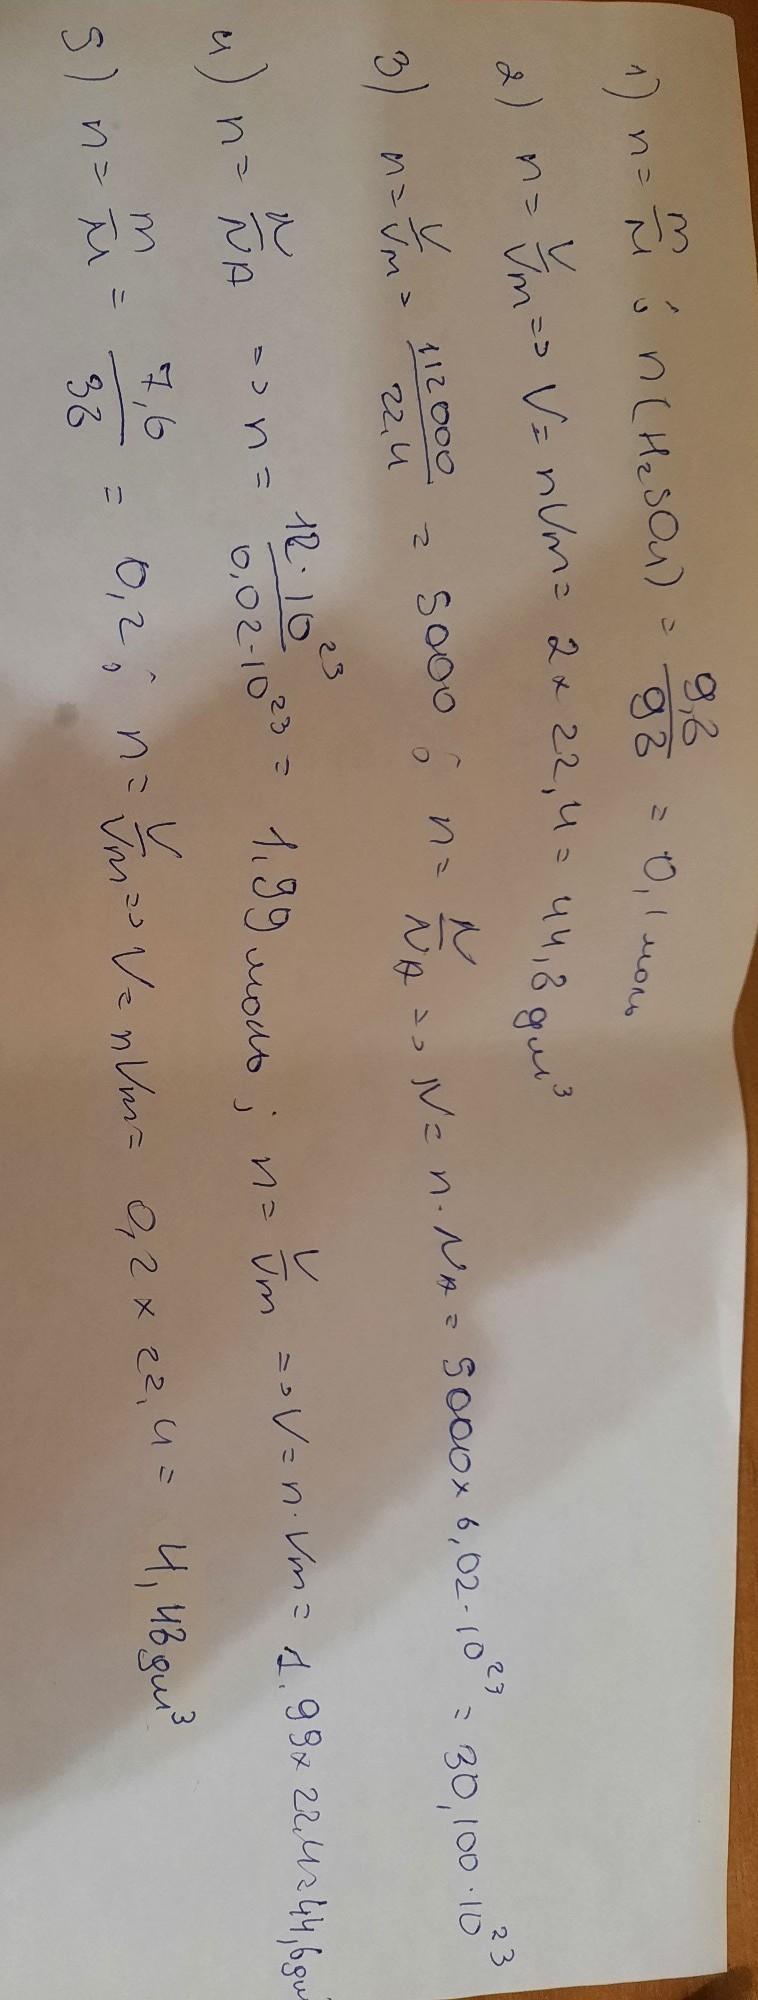 1) n = m/M ; n(H₂SO₄) = 9,8/98 = 0,1 моль
2) n = V/Vm => V = nVm = 2 × 22,4 = 44,8 дм³
3) n = V/Vm = 112000/22,4 = 5000 ; n = N/NA => N = n · NA = 5000 × 6,02 · 10²³ = 30,100 · 10²³
4) n = N/NA => n = 12 · 10²³/6,02 · 10²³ = 1,99 моль ; n = V/Vm => V = n · Vm = 1,99 × 22,4 = 44,6 дм
5) n = m/M = 7,6/38 = 0,2 ; n = V/Vm => V = nVm = 0,2 × 22,4 = 4,48 дм³